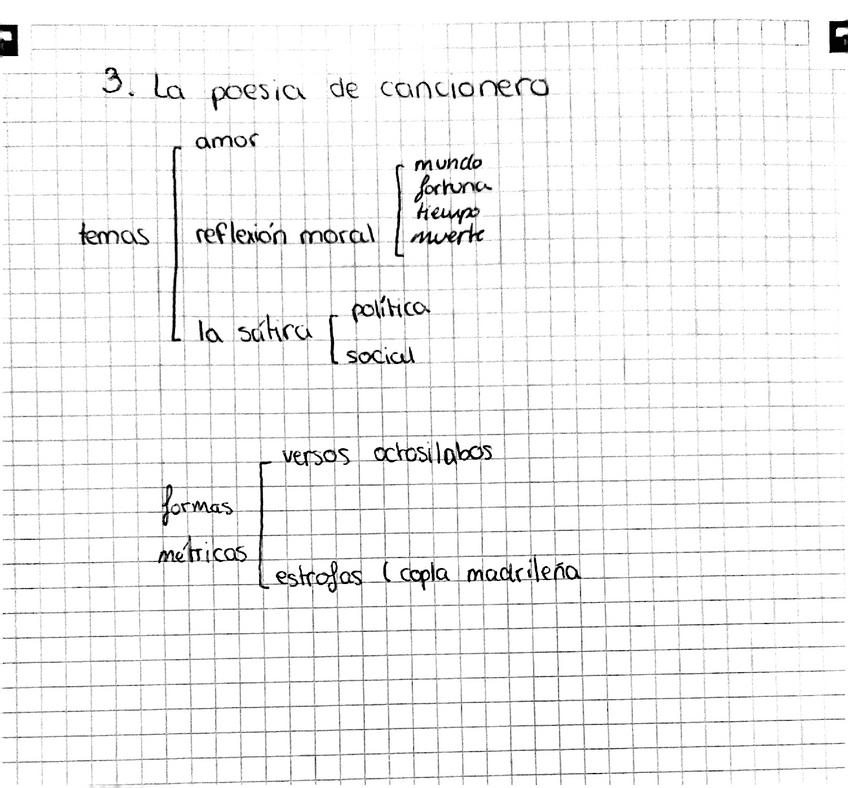 3. La poesia de cancionero
amor
mundo
fortuna
tiempo
temas reflexión moral muerte
política
la sátira
social
versos octosilabos
formas
métricas
estrofas (copla madrileña